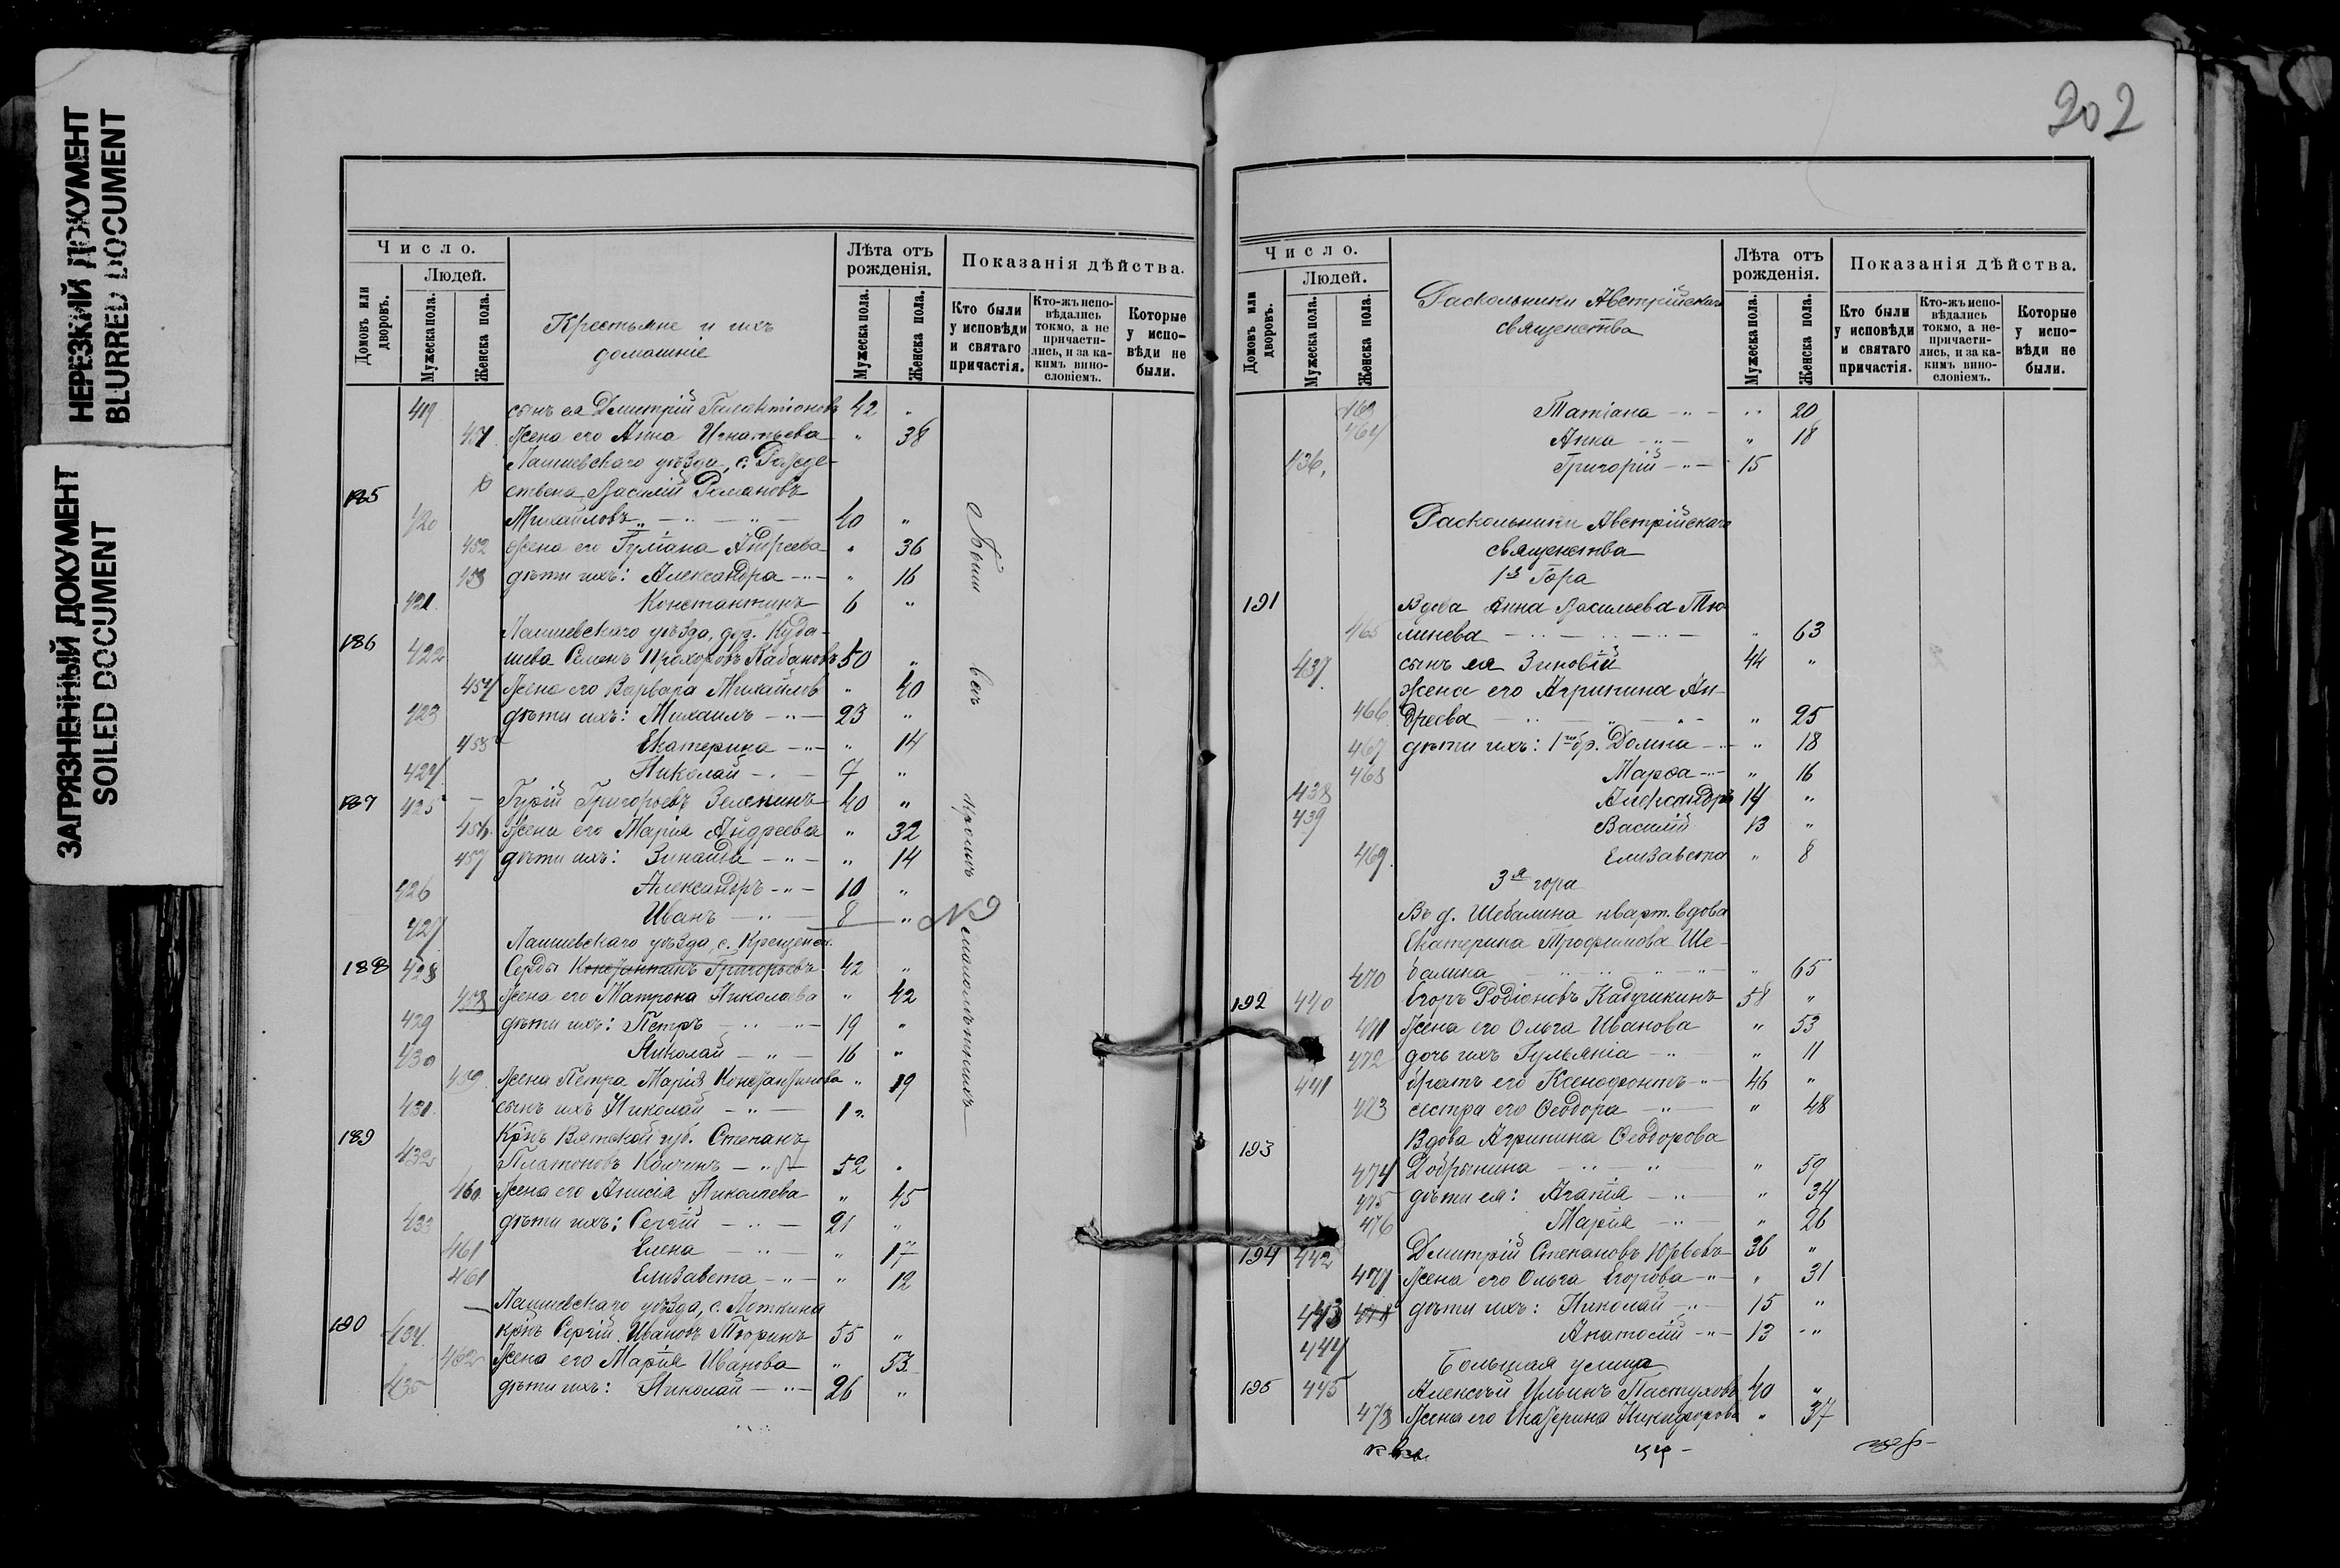 НЕРЕЗКИЙ ДОКУМЕНТ
BLURRED DOCUMENT
ЗАГРЯЗНЕННЫЙ ДОКУМЕНТ
SOILED DOCUMENT
Число.
Людей.
Домовъ или дворовъ.
Мужеска пола.
Женска пола.
Крестьяне и ихъ
домашніе
Лѣта отъ рожденія.
Мужеска пола.
Женска пола.
Показанія дѣйства.
Кто были у исповѣди и святаго причастія.
Кто-жъ исповѣдались токмо, а не причастились, и за какимъ винословіемъ.
Которые у исповѣди не были.
419 сынъ ея Дмитрій 42 "
451 Жена его Анна Игнатьева " 38
Лаишевскаго уѣзда, с. Рожде-
185 ствена Василій Романовъ
420 Михайловъ 40 "
452 Жена его Іуліана Андреева " 36
453 дѣти ихъ: Александра " 16
421 Константинъ 6 "
Лаишевскаго уѣзда, дер. Куда-
186 422 шева Семенъ Прохоровъ Кабановъ 50 "
454 Жена его Варвара Михайлов " 40
423 дѣти ихъ: Михаилъ 23 "
455 Екатерина " 14
424 Николай 7 "
187 425 Гурій Григорьевъ Зеленинъ 40 "
456 Жена его Марія Андреева " 32
457 дѣти ихъ: Зинаида " 14
426 Александръ 10 "
427 Иванъ 8 "
Лаишевскаго уѣзда, с. Крещенск.
188 428 Серды Константинъ Григорьевъ 42 "
458 Жена его Матрона Николаева " 42
429 дѣти ихъ: Петръ 19 "
430 Николай 16 "
459 Жена Петра Марія Константинова " 19
431 сынъ ихъ Николай
189 Крнъ Вятской губ. Степанъ
432 Платоновъ 52 "
460 Жена его Анисія Николаева " 45
433 дѣти ихъ: Сергій 21 "
461 Елена " 17
461 Елизавета " 12
Лаишевскаго уѣзда, с.
190 434 крнъ Сергій Ивановъ Тюринъ 55 "
462 Жена его Марія Иванова " 53
435 дѣти ихъ: Николай 26 "
Были всѣ кромѣ малолѣтнихъ
202
Число.
Людей.
Домовъ или дворовъ.
Мужеска пола.
Женска пола.
Раскольники Австрійскаго
священства
Лѣта отъ рожденія.
Мужеска пола.
Женска пола.
Показанія дѣйства.
Кто были у исповѣди и святаго причастія.
Кто-жъ исповѣдались токмо, а не-причастились, и за какимъ винословіемъ.
Которые у исповѣди не были.
463 Татіана " 20
464 Анна " 18
436 Григорій 15
Раскольники Австрійскаго
священства
1я Гора
191 Вдова Анна Васильева Тю-
465 линева " 63
437 сынъ ея Зиновій 44 "
Жена его Агрипина Ан-
466 дреева " 25
467 дѣти ихъ: 1го бр. Домна " 18
468 Марѳа " 16
438 Александръ 14 "
439 Василій 13 "
469 Елизавета " 8
3я гора
Въ д. Шебалина кварт. вдова
Екатерина Трофимова Ше-
470 балина " 65
192 440 Егоръ Родіоновъ Кадушкинъ 58 "
471 Жена его Ольга Иванова " 53
472 дочь ихъ Гульянія " 11
441 братъ его Ксенофонтъ 46 "
473 сестра его Ѳеодора " 48
193 Вдова Агрипина Ѳеодорова
474 Добрынина " 59
475 дѣти ея: Агапія " 34
476 Марія " 26
194 442 Дмитрій Степановъ Юрьевъ 36 "
477 Жена его Ольга Егорова " 31
443 478 дѣти ихъ: Николай 15 "
444 Анатолій 13 "
Большая улица
195 445 Алексѣй Ильинъ Пастуховъ 40 "
478 Жена его Екатерина Никифорова " 37